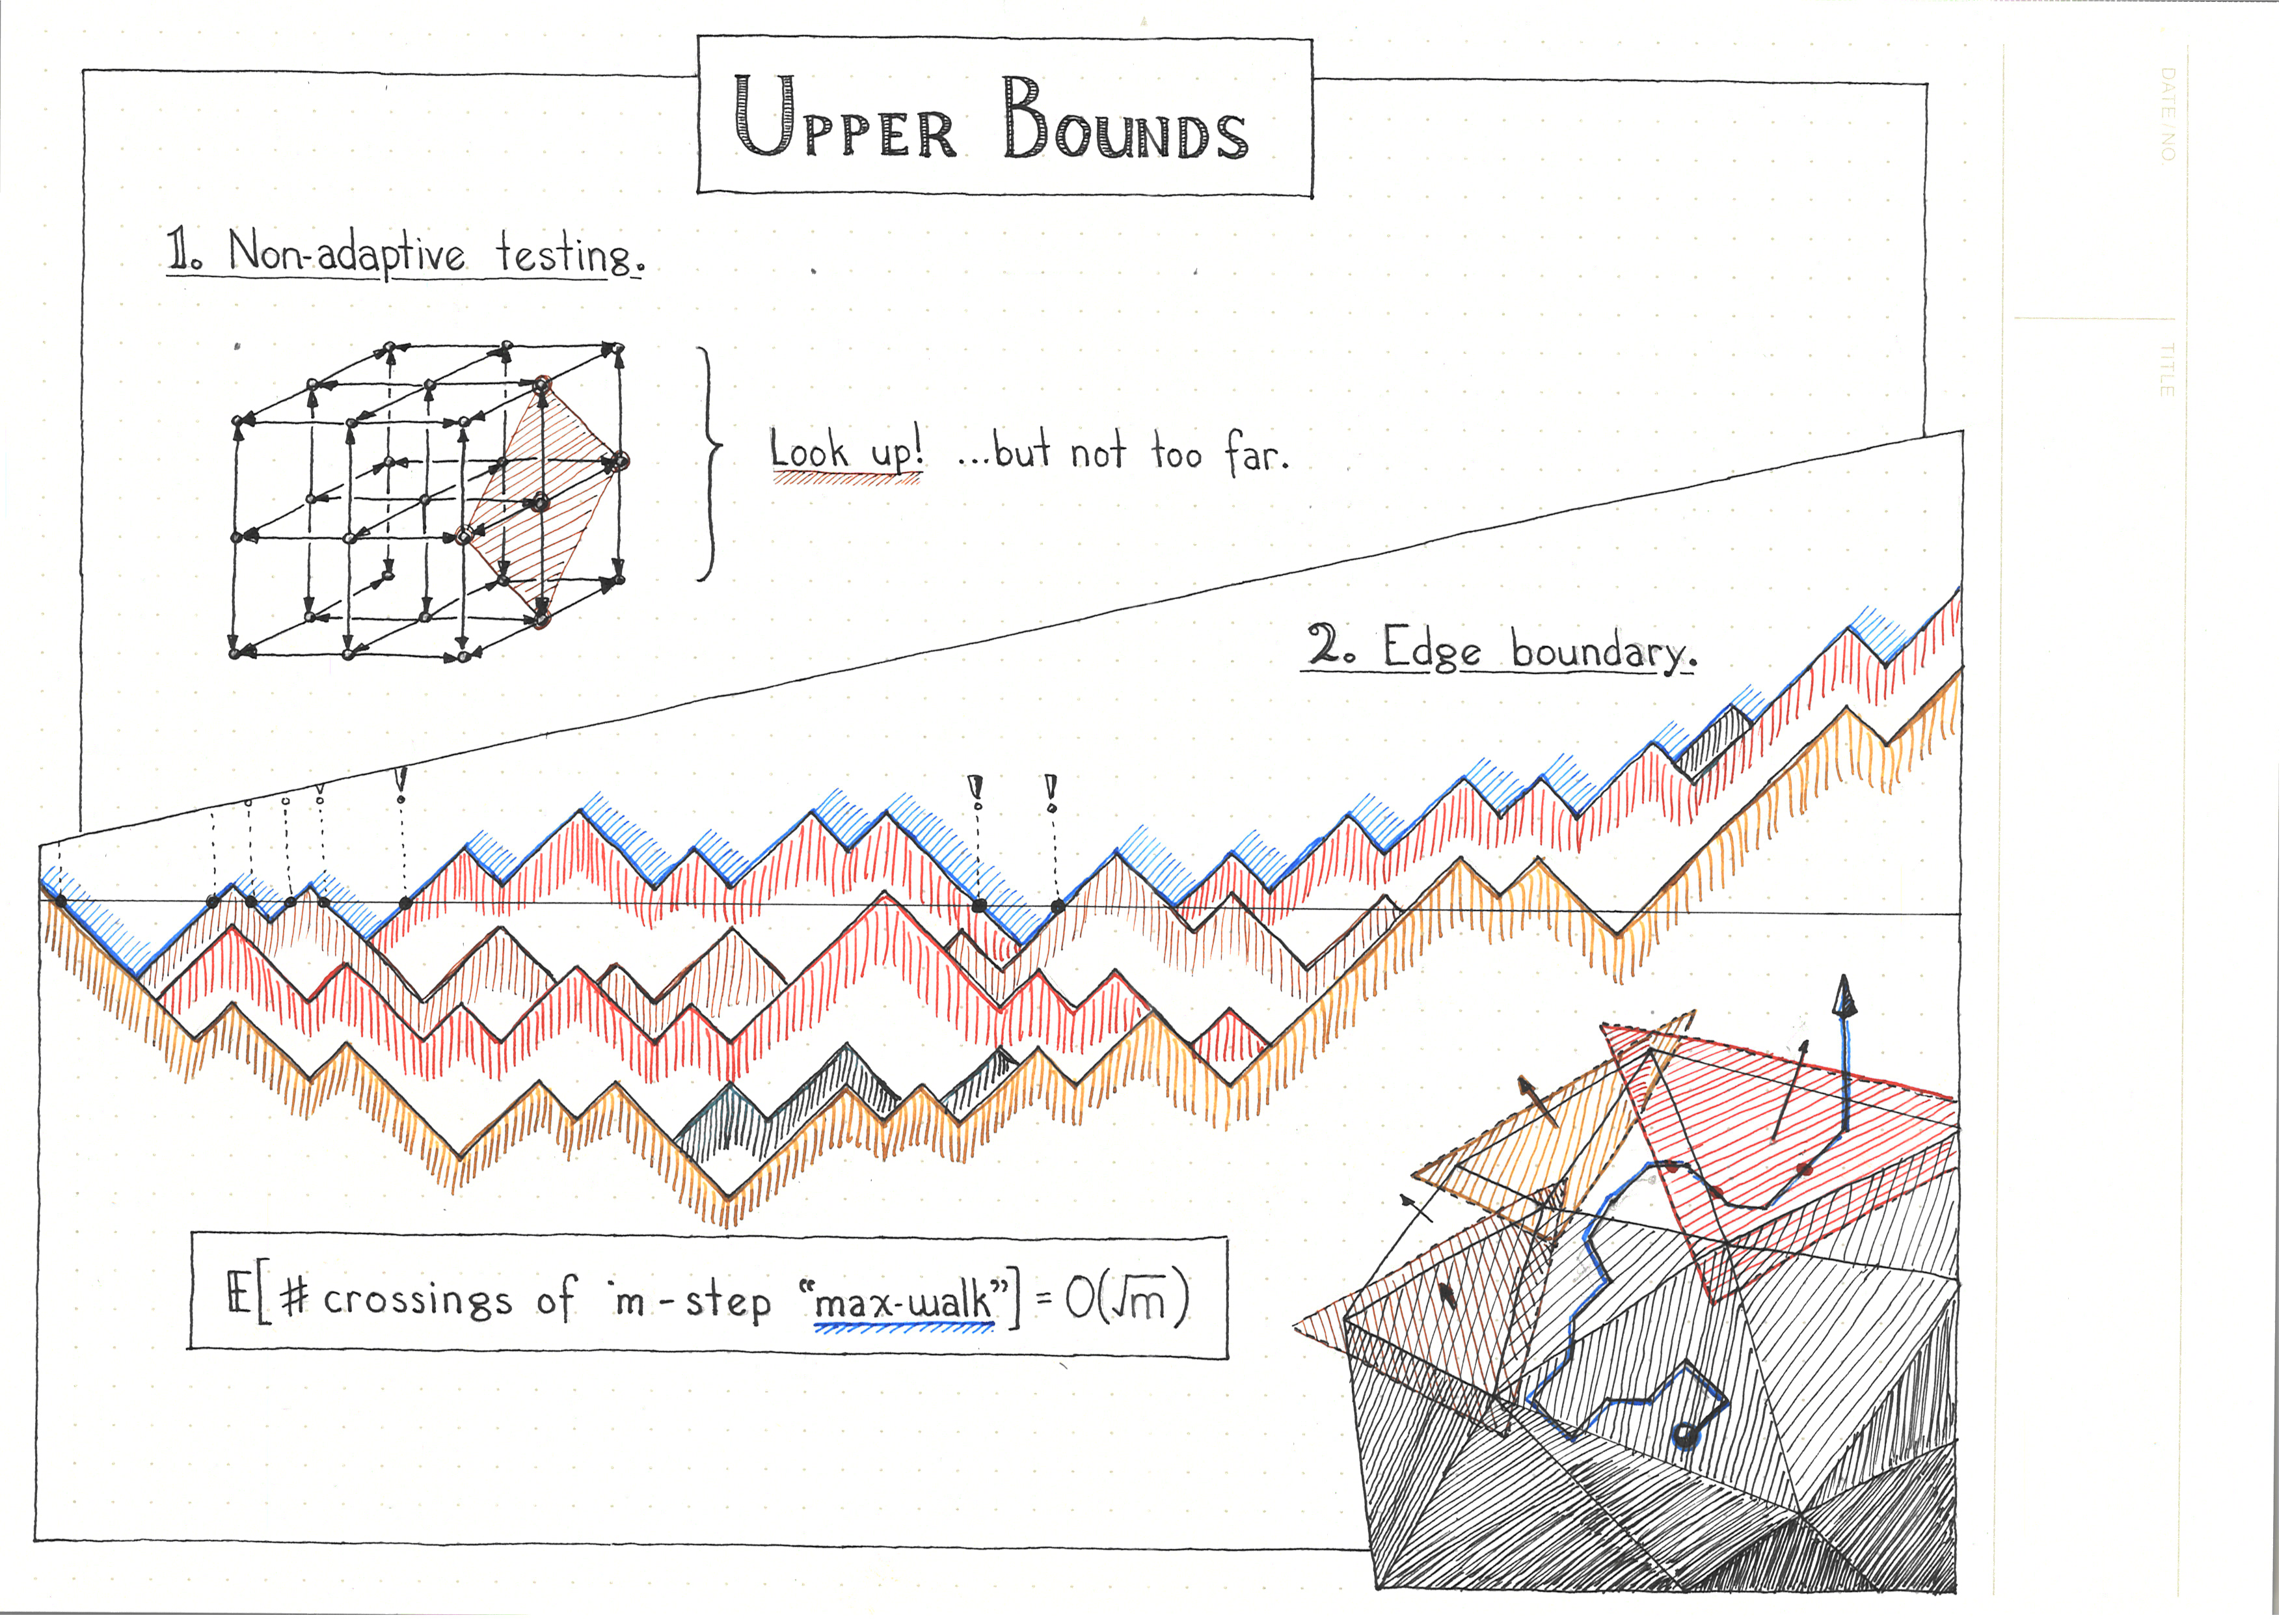 UPPER BOUNDS
1. Non-adaptive testing.
Look up! ...but not too far.
2. Edge boundary.
! ! ! !
E[# crossings of m-step "max-walk"] = O(√m)
DATE/NO.
TITLE